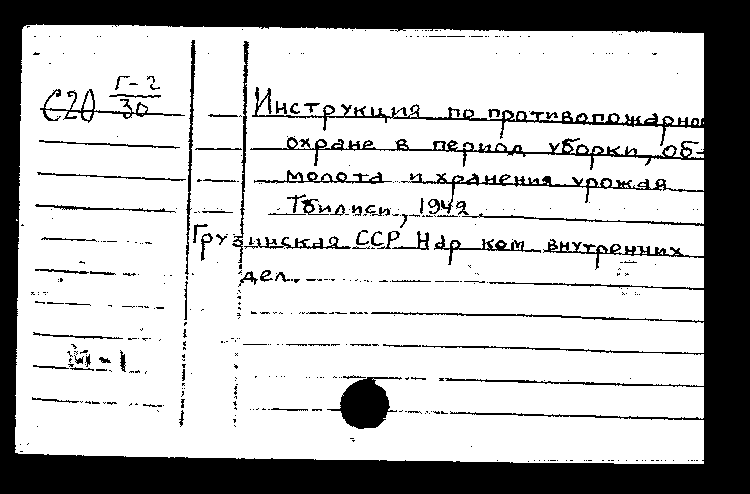 С20 Г-2
30
Инструкция по противопожарно
охране в период уборки, об-
молота и хранения урожая
Тбилиси, 1942.
Грузинская ССР Нар ком внутренних
дел.